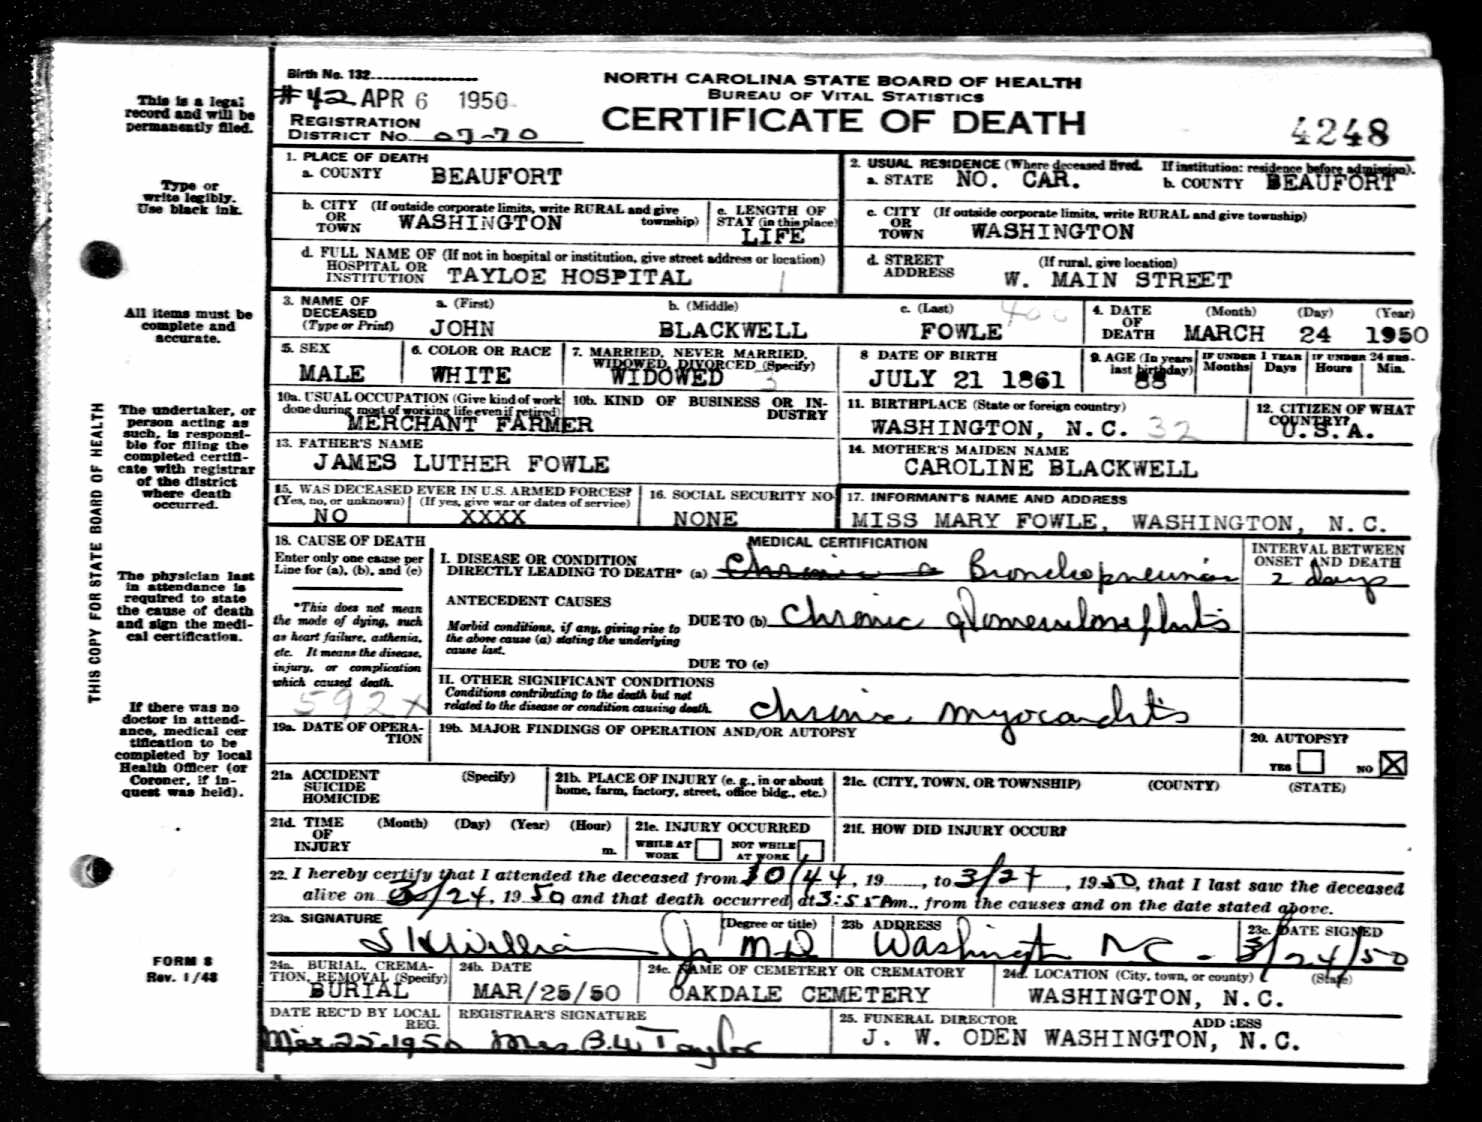 Birth No. 132
NORTH CAROLINA STATE BOARD OF HEALTH
BUREAU OF VITAL STATISTICS
CERTIFICATE OF DEATH
#42 APR 6 1950
REGISTRATION
DISTRICT No. 07-70
4248
This is a legal
record and will be
permanently filed.
Type or
write legibly.
Use black ink.
All items must be
complete and
accurate.
The undertaker, or
person acting as
such, is responsi-
ble for filing the
completed certifi-
cate with registrar
of the district
where death
occurred.
The physician last
in attendance is
required to state
the cause of death
and sign the medi-
cal certification.
If there was no
doctor in attend-
ance, medical cer
tification to be
completed by local
Health Officer (or
Coroner, if in-
quest was held).
FORM 8
Rev. 1/48
THIS COPY FOR STATE BOARD OF HEALTH
1. PLACE OF DEATH
a. COUNTY BEAUFORT
2. USUAL RESIDENCE (Where deceased lived. If institution: residence before admission).
a. STATE NO. CAR. b. COUNTY BEAUFORT
b. CITY OR TOWN (If outside corporate limits, write RURAL and give township) WASHINGTON
c. LENGTH OF STAY (in this place) LIFE
c. CITY OR TOWN (If outside corporate limits, write RURAL and give township) WASHINGTON
d. FULL NAME OF HOSPITAL OR INSTITUTION (If not in hospital or institution, give street address or location) TAYLOE HOSPITAL
d. STREET ADDRESS (If rural, give location) W. MAIN STREET
3. NAME OF DECEASED (Type or Print) a. (First) JOHN b. (Middle) BLACKWELL c. (Last) FOWLE
4. DATE OF DEATH (Month) (Day) (Year) MARCH 24 1950
5. SEX MALE
6. COLOR OR RACE WHITE
7. MARRIED, NEVER MARRIED, WIDOWED, DIVORCED (Specify) WIDOWED 3
8 DATE OF BIRTH JULY 21 1861
9. AGE (In years last birthday) 88
IF UNDER 1 YEAR Months Days
IF UNDER 24 HRS. Hours Min.
10a. USUAL OCCUPATION (Give kind of work done during most of working life even if retired) MERCHANT FARMER
10b. KIND OF BUSINESS OR INDUSTRY
11. BIRTHPLACE (State or foreign country) WASHINGTON, N.C. 32
12. CITIZEN OF WHAT COUNTRY? U.S.A.
13. FATHER'S NAME JAMES LUTHER FOWLE
14. MOTHER'S MAIDEN NAME CAROLINE BLACKWELL
15. WAS DECEASED EVER IN U.S. ARMED FORCES? (Yes, no, or unknown) (If yes, give war or dates of service) NO XXXX
16. SOCIAL SECURITY NO NONE
17. INFORMANT'S NAME AND ADDRESS MISS MARY FOWLE, WASHINGTON, N.C.
18. CAUSE OF DEATH
Enter only one cause per
Line for (a), (b), and (c)
*This does not mean
the mode of dying, such
as heart failure, asthenia,
etc. It means the disease,
injury, or complication
which caused death.
592X
MEDICAL CERTIFICATION
I. DISEASE OR CONDITION
DIRECTLY LEADING TO DEATH* (a) Chronic Bronchopneumonia
INTERVAL BETWEEN
ONSET AND DEATH
2 days
ANTECEDENT CAUSES
Morbid conditions, if any, giving rise to
the above cause (a) stating the underlying
cause last.
DUE TO (b) Chronic glomerulonephritis
DUE TO (c)
II. OTHER SIGNIFICANT CONDITIONS
Conditions contributing to the death but not
related to the disease or condition causing death.
Chronic myocarditis
19a. DATE OF OPERATION
19b. MAJOR FINDINGS OF OPERATION AND/OR AUTOPSY
20. AUTOPSY?
YES NO X
21a ACCIDENT SUICIDE HOMICIDE (Specify)
21b. PLACE OF INJURY (e. g., in or about home, farm, factory, street, office bldg., etc.)
21c. (CITY, TOWN, OR TOWNSHIP) (COUNTY) (STATE)
21d. TIME OF INJURY (Month) (Day) (Year) (Hour) m.
21e. INJURY OCCURRED WHILE AT WORK NOT WHILE AT WORK
21f. HOW DID INJURY OCCUR?
22. I hereby certify that I attended the deceased from 10/44, 19, to 3/24, 1950, that I last saw the deceased
alive on 3/24, 1950 and that death occurred at 3:55 Am., from the causes and on the date stated above.
23a. SIGNATURE (Degree or title) Jr MD
23b ADDRESS Washington NC.
23c. DATE SIGNED 3/24/50
24a. BURIAL, CREMATION, REMOVAL (Specify) BURIAL
24b. DATE MAR/25/50
24c. NAME OF CEMETERY OR CREMATORY OAKDALE CEMETERY
24d. LOCATION (City, town, or county) (State) WASHINGTON, N.C.
DATE REC'D BY LOCAL REG. Mar 25-1950
REGISTRAR'S SIGNATURE Mrs B.W Taylor
25. FUNERAL DIRECTOR ADDRESS
J. W. ODEN WASHINGTON, N.C.